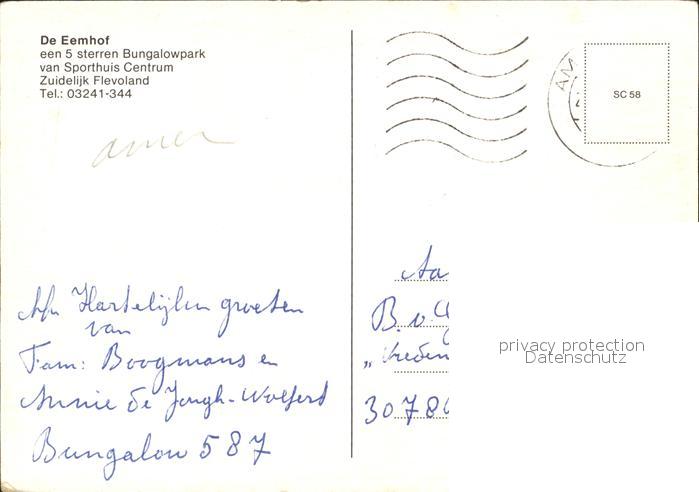 De Eemhof
een 5 sterren Bungalowpark
van Sporthuis Centrum
Zuidelijk Flevoland
Tel.: 03241-344
amer
Hartelijken groeten
van
Fam: Boogmans en
Annie de Jongh-Wolfert
Bungalow 587
AM
SC 58
Aa
B. v.
"Vreden
3078
privacy protection
Datenschutz